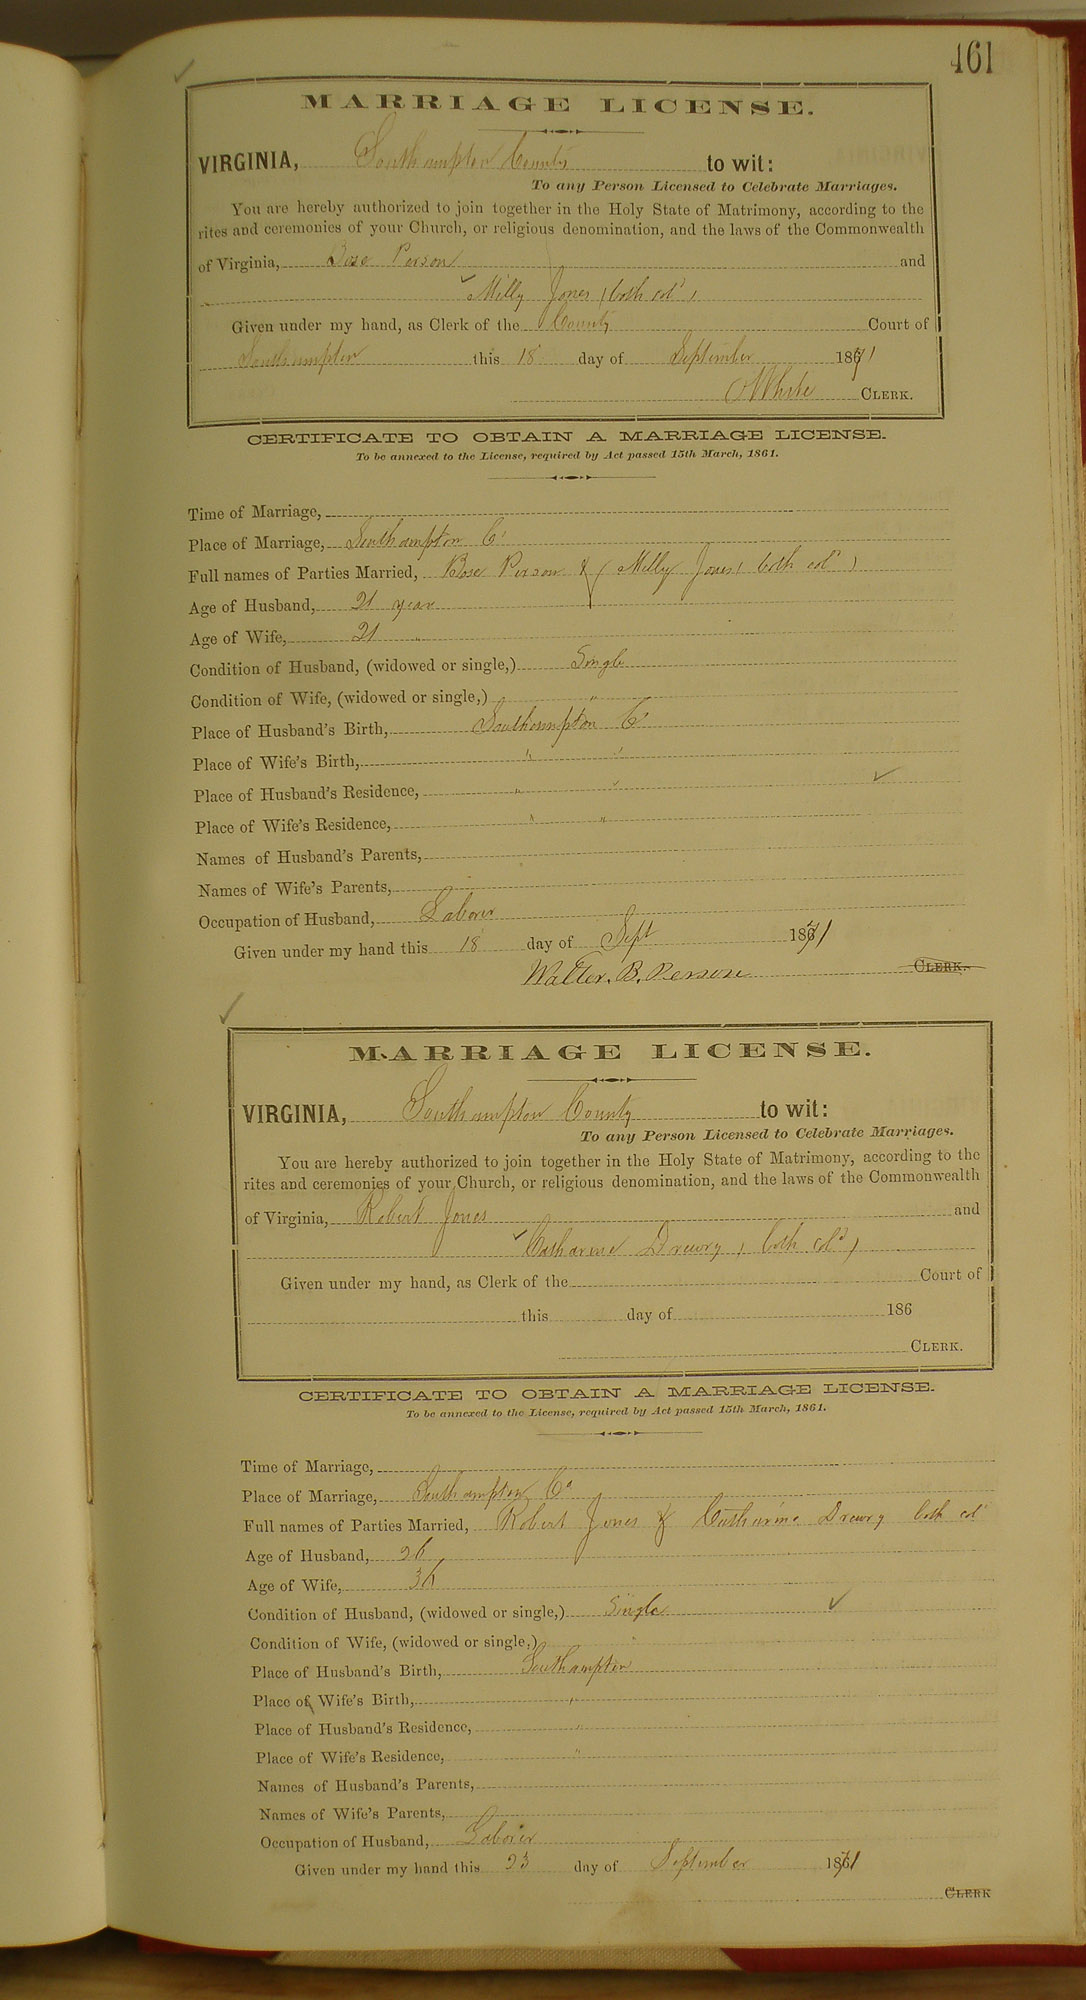 461
MARRIAGE LICENSE.
VIRGINIA, Southampton County to wit:
To any Person Licensed to Celebrate Marriages.
You are hereby authorized to join together in the Holy State of Matrimony, according to the
rites and ceremonies of your Church, or religious denomination, and the laws of the Commonwealth
of Virginia, Bose Person and
Milly Jones (both cold)
Given under my hand, as Clerk of the County Court of
Southampton this 18 day of September 1871
White CLERK.
CERTIFICATE TO OBTAIN A MARRIAGE LICENSE.
To be annexed to the License, required by Act passed 15th March, 1861.
Time of Marriage,
Place of Marriage, Southampton Co
Full names of Parties Married, Bose Person & Milly Jones (both cold)
Age of Husband, 21 years
Age of Wife, 21 "
Condition of Husband, (widowed or single,) Single
Condition of Wife, (widowed or single,) "
Place of Husband's Birth, Southampton Co
Place of Wife's Birth, " "
Place of Husband's Residence, " "
Place of Wife's Residence, " "
Names of Husband's Parents,
Names of Wife's Parents,
Occupation of Husband, Laborer
Given under my hand this 18 day of Sept 1871
Walter. B. Person CLERK.
MARRIAGE LICENSE.
VIRGINIA, Southampton County to wit:
To any Person Licensed to Celebrate Marriages.
You are hereby authorized to join together in the Holy State of Matrimony, according to the
rites and ceremonies of your Church, or religious denomination, and the laws of the Commonwealth
of Virginia, Robert Jones and
Catharine Drewry (both cold)
Given under my hand, as Clerk of the Court of
this day of 186
CLERK.
CERTIFICATE TO OBTAIN A MARRIAGE LICENSE.
To be annexed to the License, required by Act passed 15th March, 1861.
Time of Marriage,
Place of Marriage, Southampton Co
Full names of Parties Married, Robert Jones & Catharine Drewry both col
Age of Husband, 26
Age of Wife, 36
Condition of Husband, (widowed or single,) Single
Condition of Wife, (widowed or single,)
Place of Husband's Birth, Southampton
Place of Wife's Birth, "
Place of Husband's Residence, "
Place of Wife's Residence, "
Names of Husband's Parents,
Names of Wife's Parents,
Occupation of Husband, Laborer
Given under my hand this 23 day of September 1871
CLERK